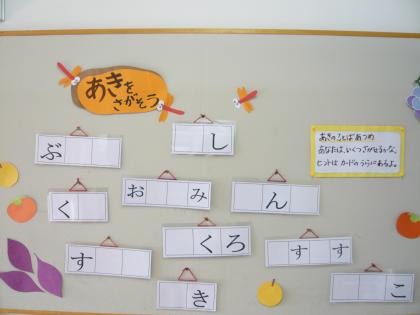 あきを
さがそう
あきのことばあつめ
あなたは、いくつさがせるかな。
ヒントは カードのうらにあるよ。
ぶ
し
おみ
く
ん
くろ
す
すす
き
こ